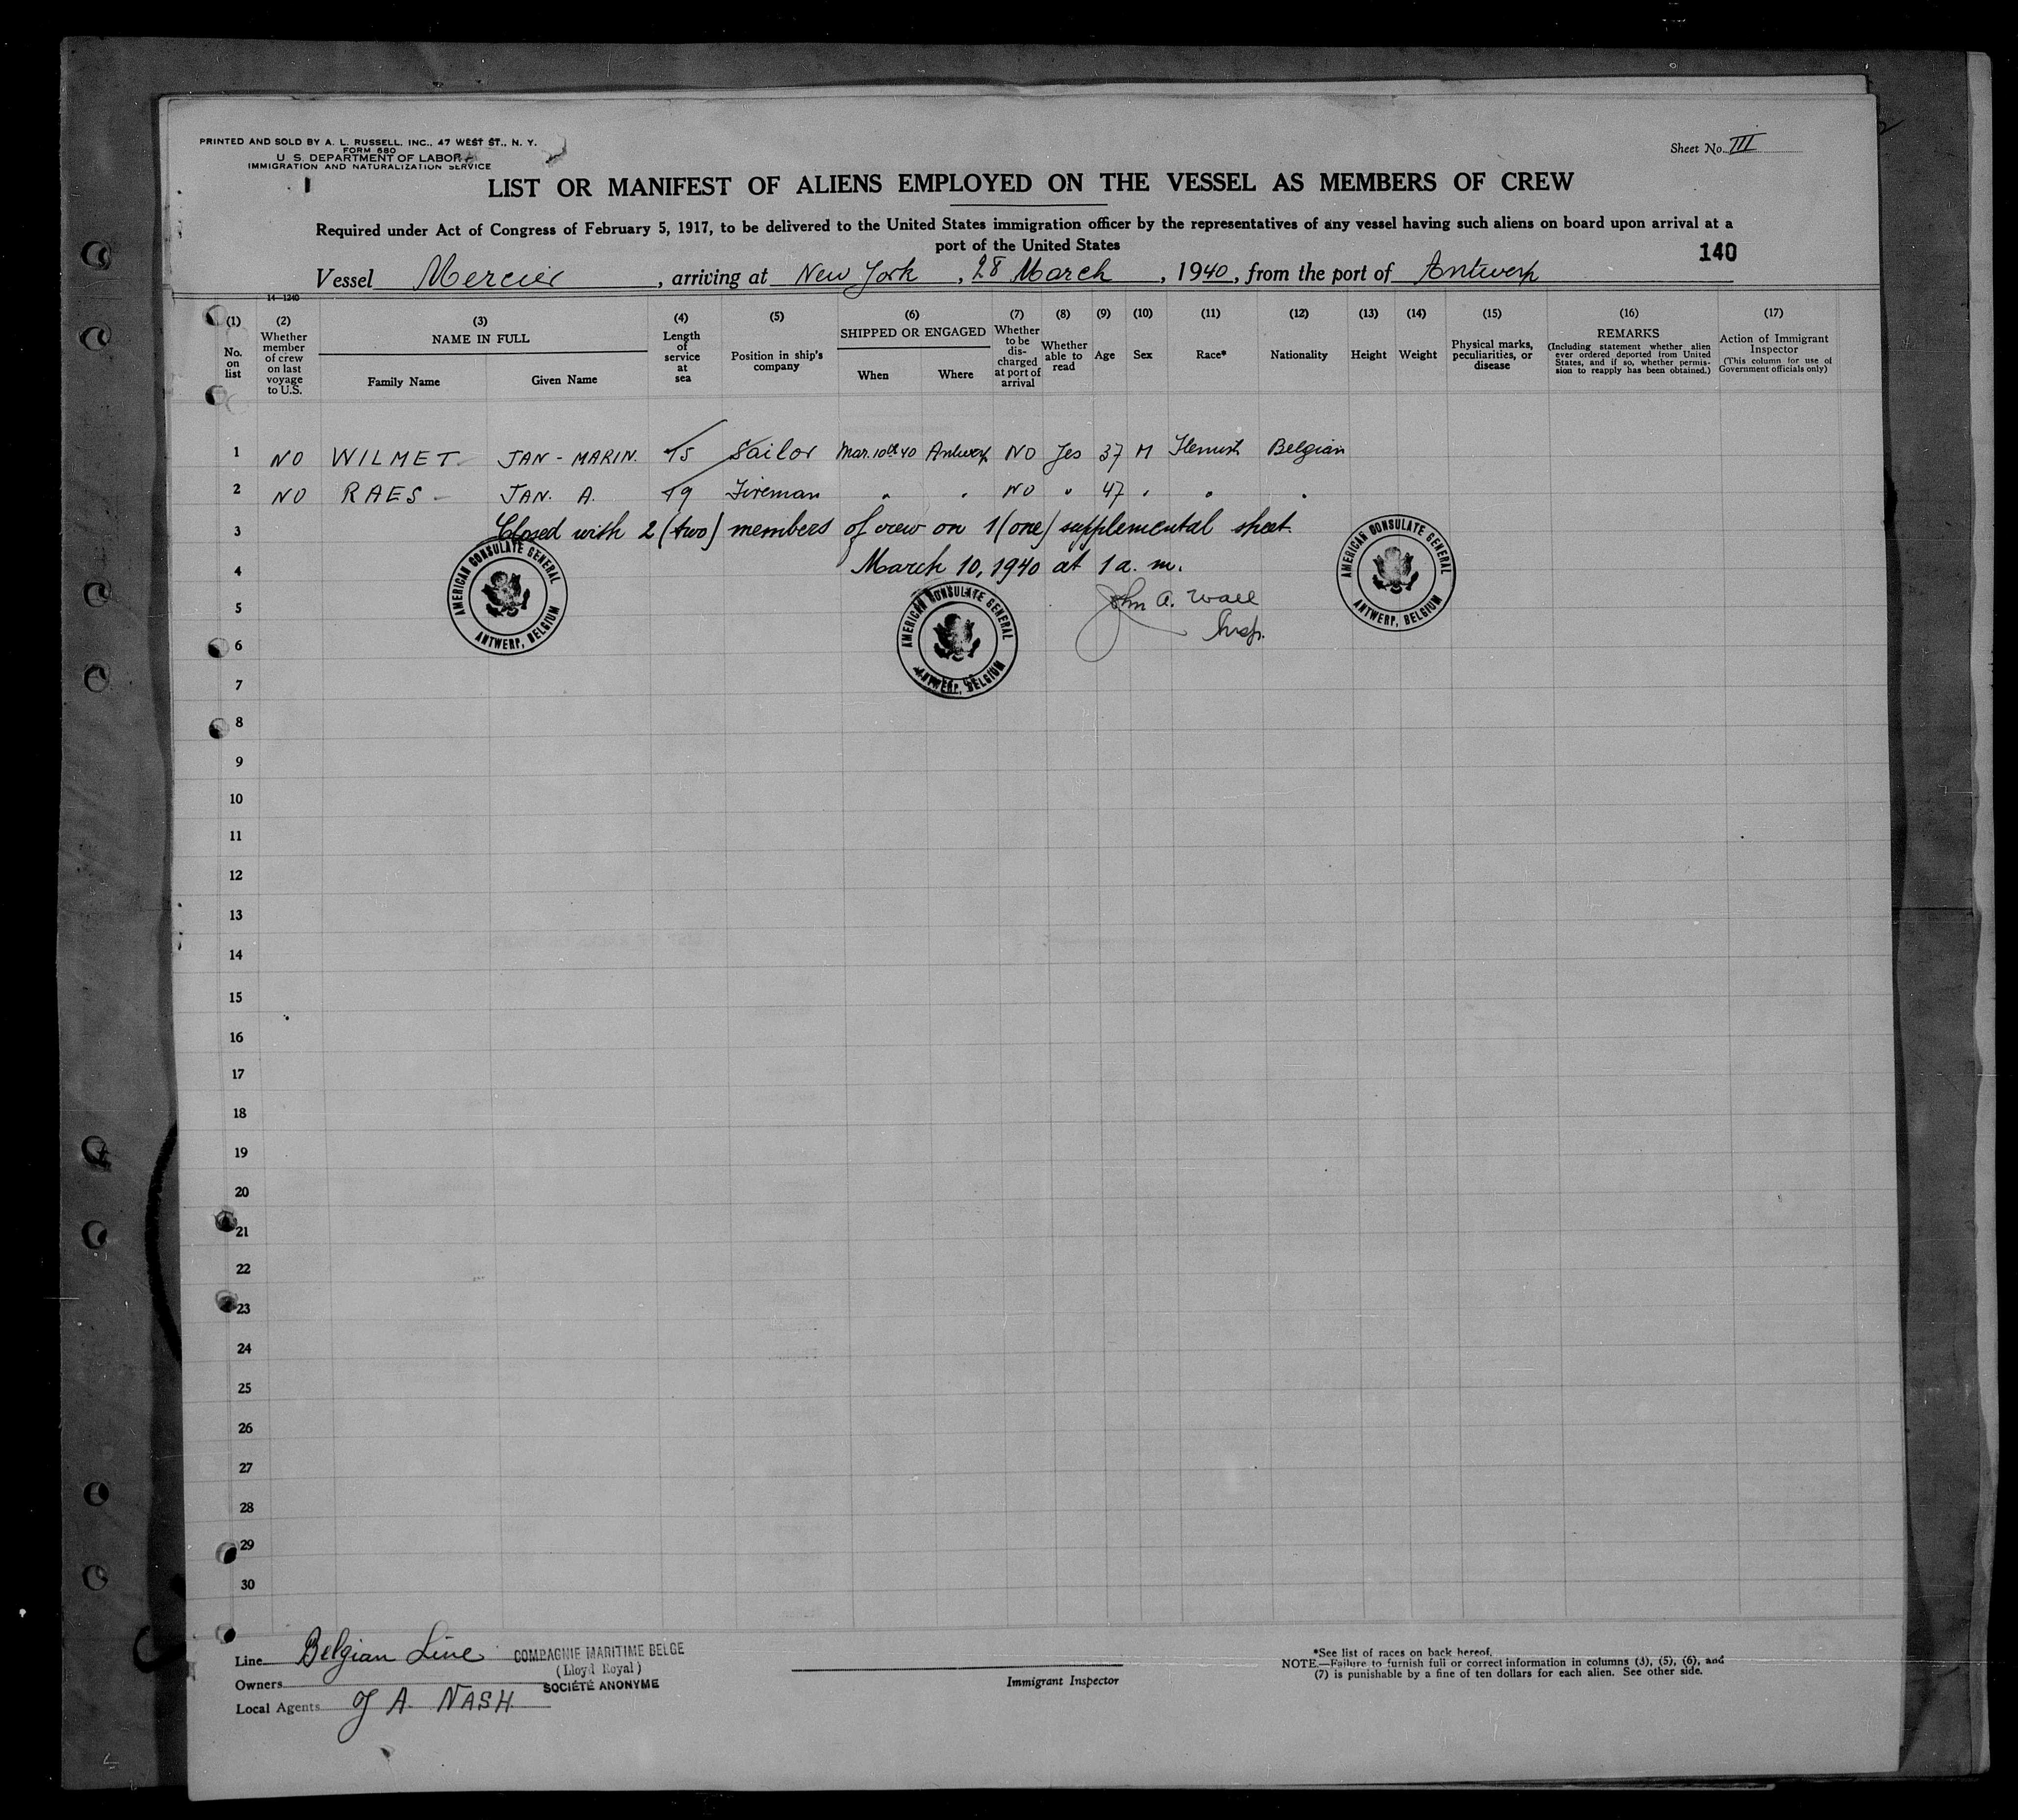 PRINTED AND SOLD BY A. L. RUSSELL, INC., 47 WEST ST., N. Y.
FORM 680
U. S. DEPARTMENT OF LABOR
IMMIGRATION AND NATURALIZATION SERVICE
Sheet No. III
LIST OR MANIFEST OF ALIENS EMPLOYED ON THE VESSEL AS MEMBERS OF CREW
Required under Act of Congress of February 5, 1917, to be delivered to the United States immigration officer by the representatives of any vessel having such aliens on board upon arrival at a
port of the United States
140
Vessel Mercier, arriving at New York, 28 March, 1940, from the port of Antwerp
14—1240
(1) No. on list
(2) Whether member of crew on last voyage to U.S.
(3) NAME IN FULL
Family Name Given Name
(4) Length of service at sea
(5) Position in ship's company
(6) SHIPPED OR ENGAGED
When Where
(7) Whether to be dis-charged at port of arrival
(8) Whether able to read
(9) Age
(10) Sex
(11) Race*
(12) Nationality
(13) Height
(14) Weight
(15) Physical marks, peculiarities, or disease
(16) REMARKS
(Including statement whether alien ever ordered deported from United States, and if so, whether permis-sion to reapply has been obtained.)
(17) Action of Immigrant Inspector
(This column for use of Government officials only)
1 NO WILMET JAN - MARIN. 15 Sailor Mar. 10th 40 Antwerp NO Yes 37 M Flemish Belgian
2 NO RAES - JAN. A. 19 Fireman " " NO " 47 " " "
3 Closed with 2 (two) members of crew on 1 (one) supplemental sheet.
4 March 10, 1940 at 1 a. m.
5 John A. Wall
6 Insp.
AMERICAN CONSULATE GENERAL ANTWERP, BELGIUM
AMERICAN CONSULATE GENERAL ANTWERP, BELGIUM
AMERICAN CONSULATE GENERAL ANTWERP, BELGIUM
7
8
9
10
11
12
13
14
15
16
17
18
19
20
21
22
23
24
25
26
27
28
29
30
Line Belgian Line
COMPAGNIE MARITIME BELGE
(Lloyd Royal)
SOCIÉTÉ ANONYME
Owners
Local Agents A. NASH
Immigrant Inspector
*See list of races on back hereof.
NOTE.—Failure to furnish full or correct information in columns (3), (5), (6), and
(7) is punishable by a fine of ten dollars for each alien. See other side.